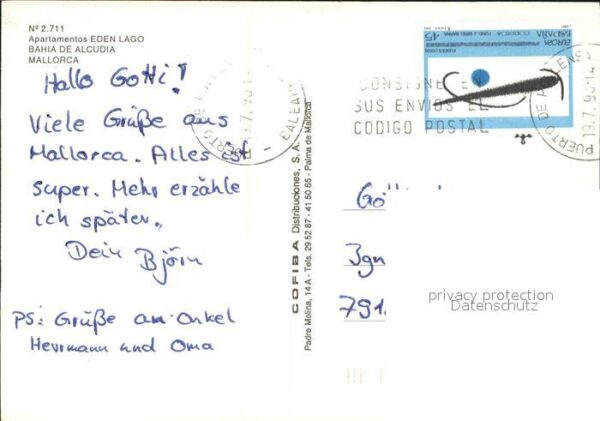 Nº 2.711
Apartamentos EDEN LAGO
BAHIA DE ALCUDIA
MALLORCA
Hallo Gotti!
Viele Grüße aus
Mallorca. Alles ist
super. Mehr erzähle
ich später.
Dein Björn
PS: Grüße an Onkel
Herrmann und Oma
COFIBA Distribuciones, S.A.
Padre Molina, 14 A - Tels. 29 52 87 - 41 50 65 - Palma de Mallorca
45
ESPAÑA
EUROPA
CORREOS
CONSIGNE EN
SUS ENVIOS EL
CODIGO POSTAL
BALEARES
PUERTO DE
19.7.93
Gö
Jgn
791.
privacy protection
Datenschutz